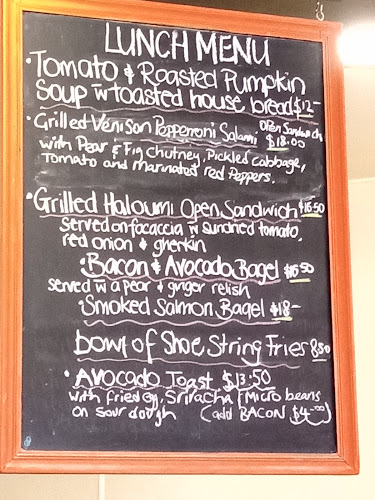 LUNCH MENU
• Tomato & Roasted Pumpkin
Soup w toasted house bread $12-
• Grilled Venison Pepperroni Salami Open Sandwich $18.00
with Pear & Fig Chutney, Pickled Cabbage,
Tomato and Marinated Red Peppers.
• Grilled Haloumi Open Sandwich $16.50
served on focaccia w sundried tomato,
red onion & gherkin
• Bacon & Avocado Bagel $16.50
served w a pear & ginger relish
• Smoked Salmon Bagel $18-
bowl of Shoe String Fries 8.50
• Avocado Toast $13.50
with fried egg, Sriracha & Micro beans
on sour dough (add BACON $4.00)